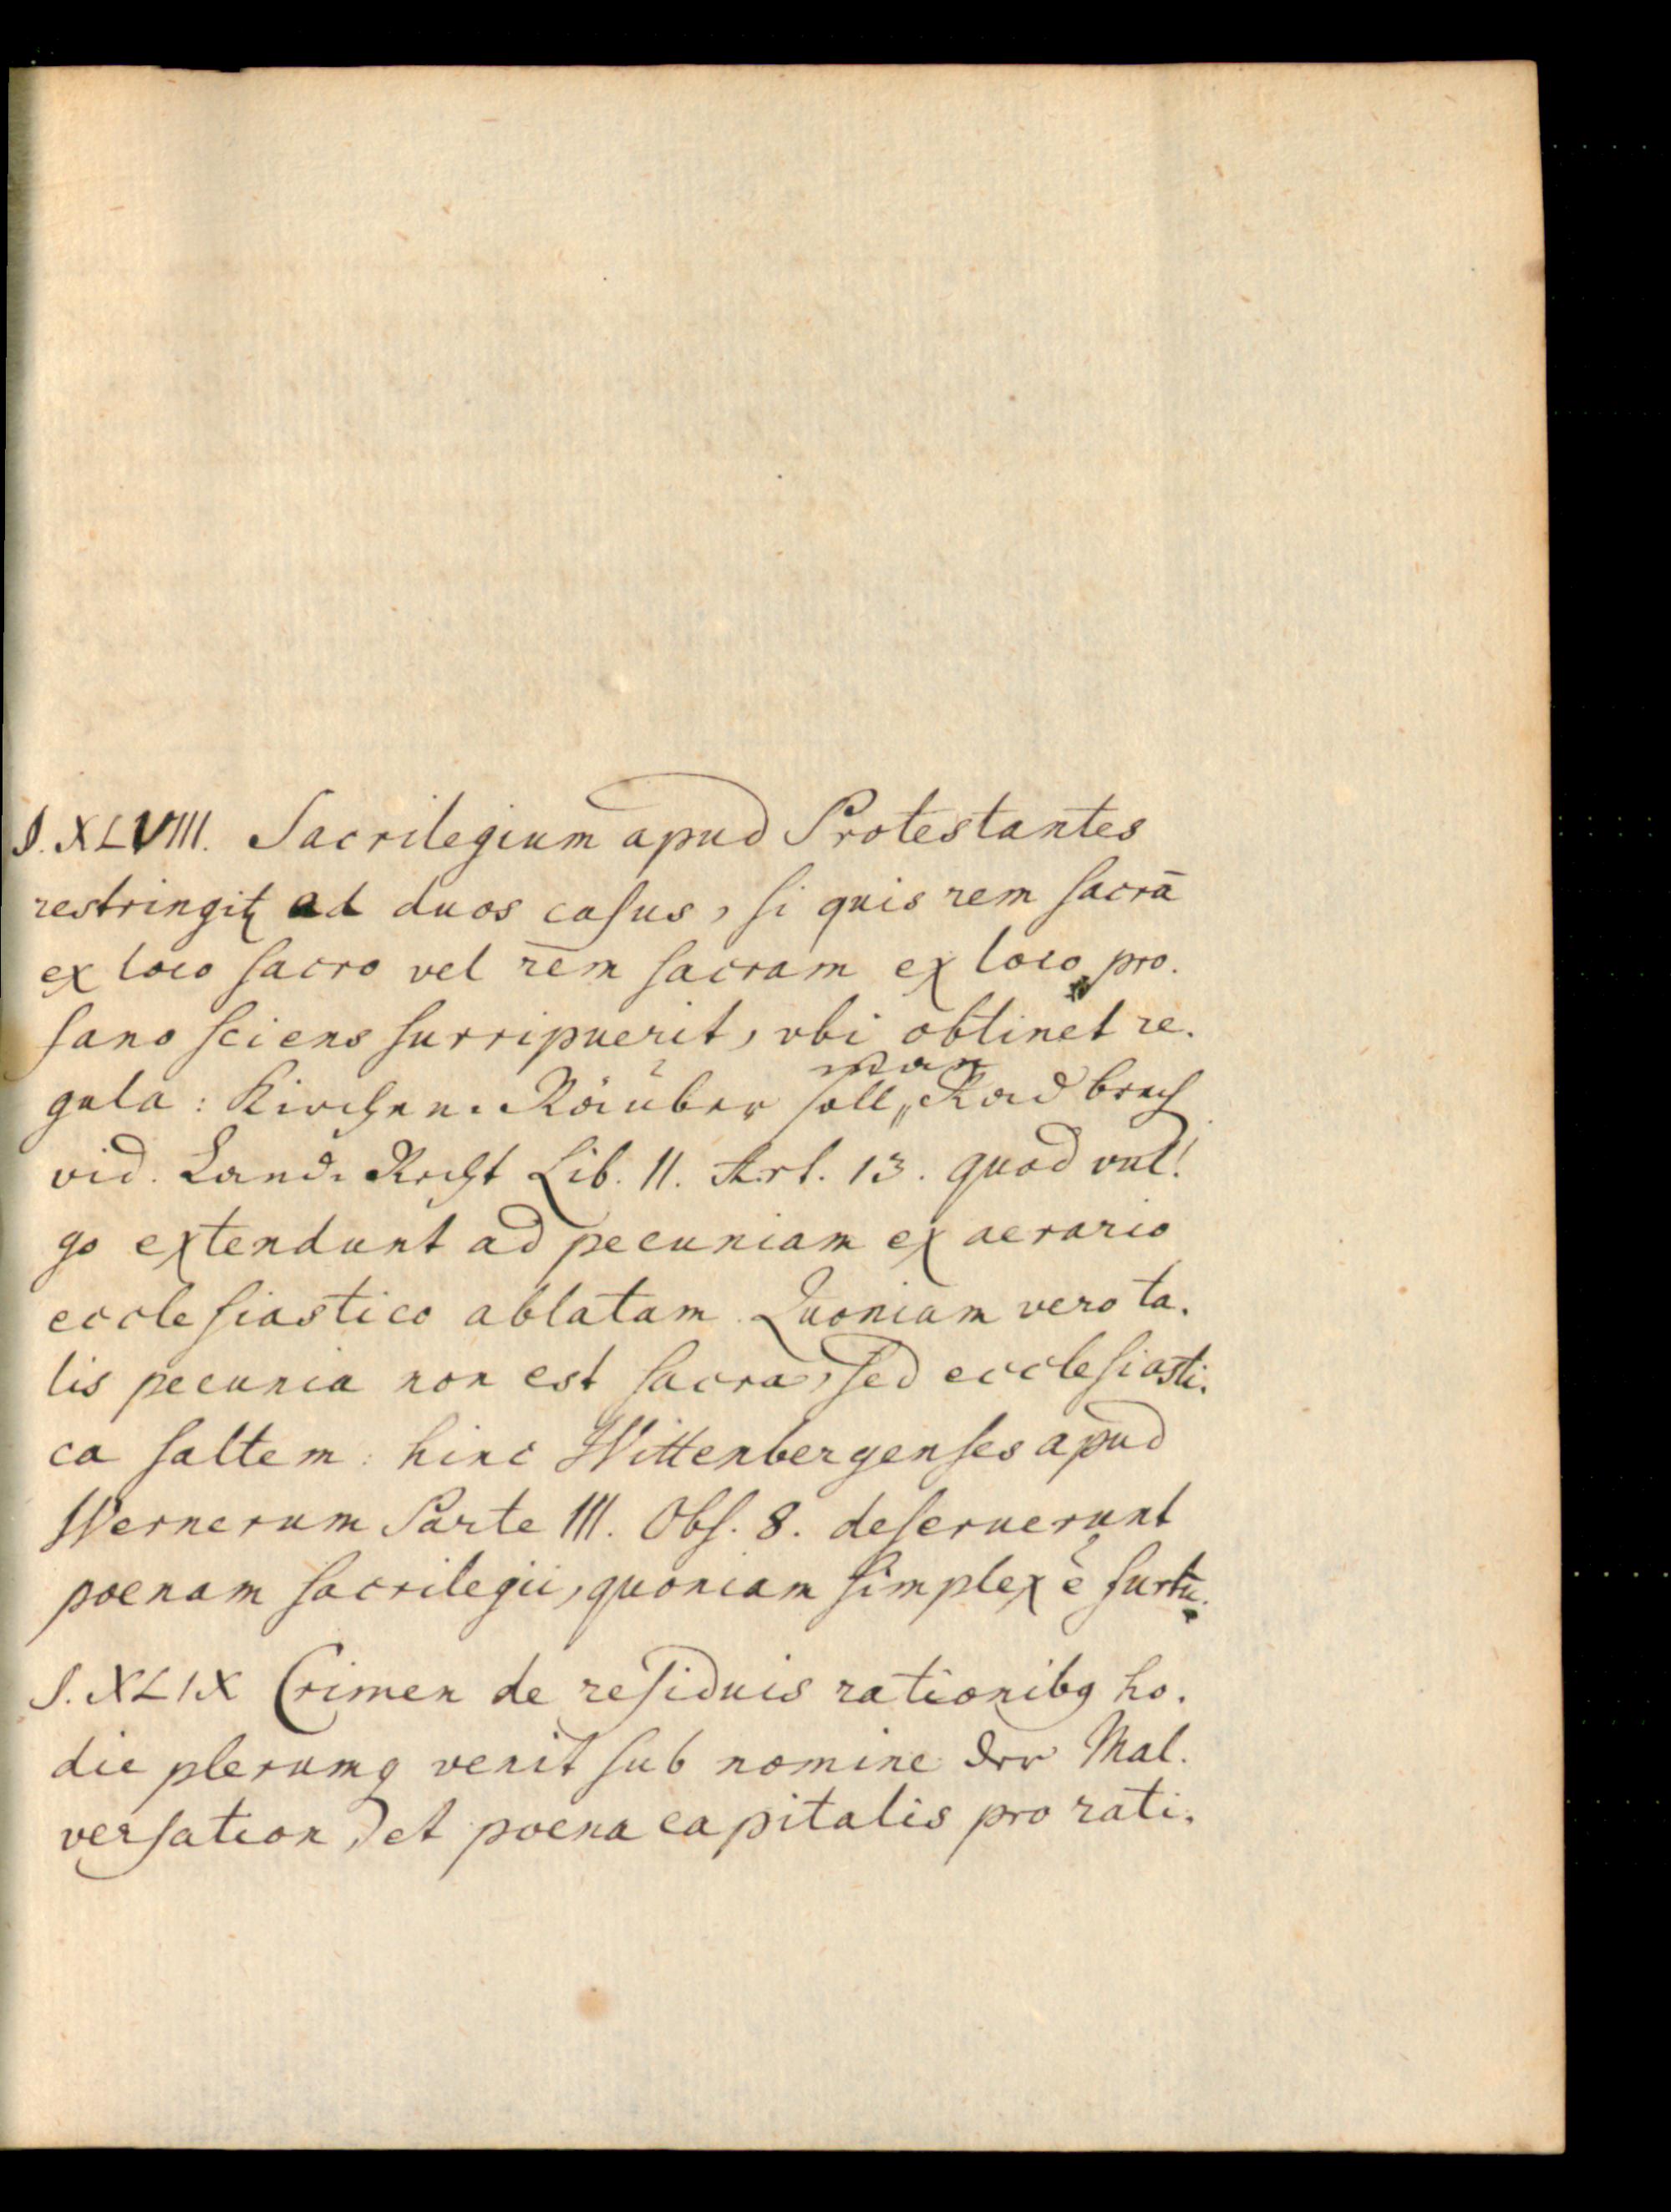 §. XLVIII. Sacrilegium apud Protestantes
restringitꝛ ad duos casus, si quis rem sacrā
ex loco sacro vel rem sacram ex loco pro-
fano sciens surripuerit, vbi obtinet re-
man
gula: Kirchen-Räuber soll „ Rad brech
vid. Land-Recht Lib. II. Art. 13. quod vul-
go extendunt ad pecuniam ex aerario
ecclesiastico ablatam. Quoniam vero ta-
lis pecunia non est sacra, sed ecclesiasti-
ca saltem: hinc Wittenbergenses apud
Wernerum Parte III. Obs. 8. deseruerunt
poenam sacrilegii, quoniam simplex ē furtū.
§. XLIX Crimen de residuis rationibꝯ ho-
die plerumq venit sub nomine der Mal-
versation, et poena capitalis pro rati-